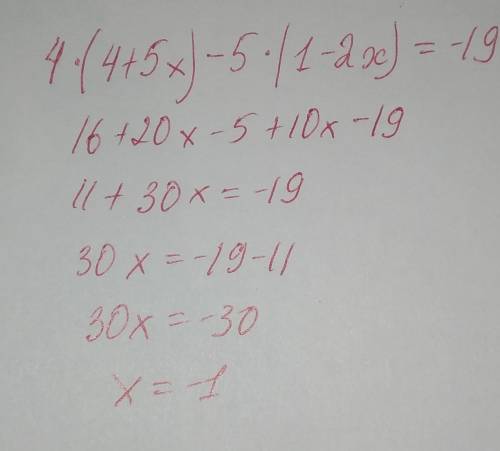 4·(4+5x)-5·(1-2x)=-19
16+20x-5+10x-19
11+30x=-19
30x=-19-11
30x=-30
x=-1